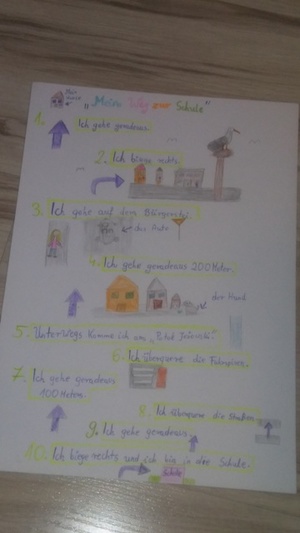 "Mein Weg zur Schule"
1. Ich gehe geradeaus.
2. Ich biege rechts.
3. Ich gehe auf dem Bürgersteig.
das Auto
4. Ich gehe geradeaus 200 Meter.
der Hund
5. Unterwegs komme ich am
6. Ich überquere die
7. Ich gehe geradeaus
100 Metern.
8. Ich überquere die Straßen.
9. Ich gehe geradeaus.
10. Ich biege rechts und ich bin in der Schule.
Schule